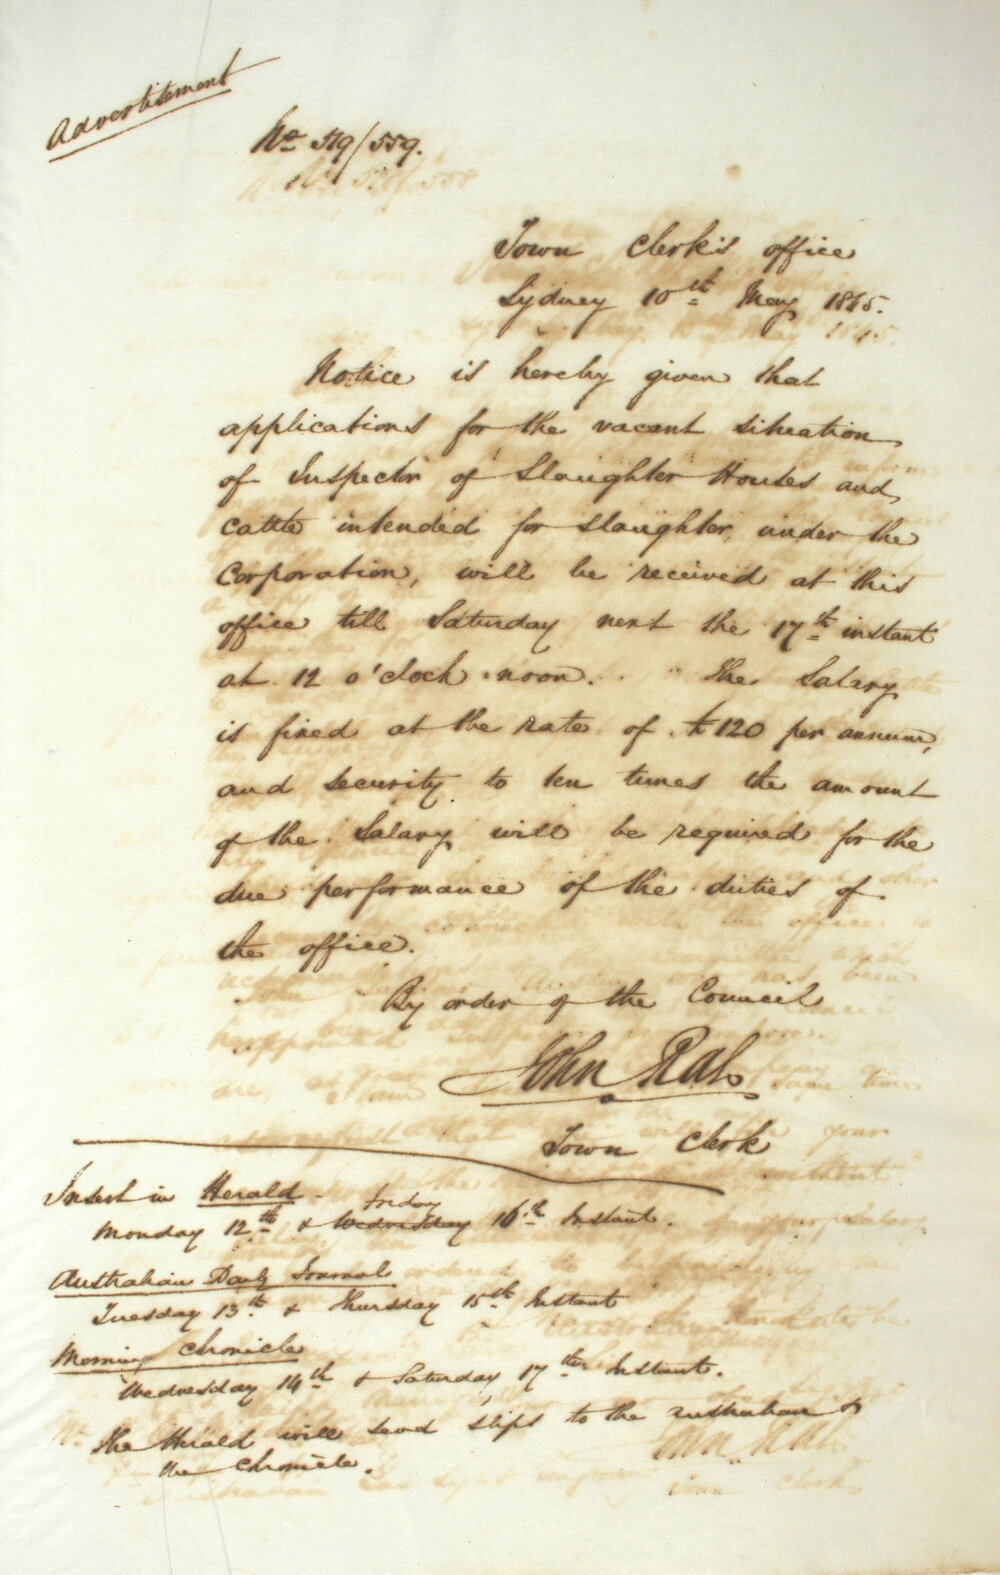 Advertisement
No 519/559.
Town Clerk's office
Sydney 10th May 1845.
Notice is hereby given that
applications for the vacant situation
of Inspector of Slaughter Houses and
cattle intended for slaughter, under the
Corporation, will be received at this
office till Saturday next the 17th instant
at 12 o'clock noon. The Salary
is fixed at the rate of £120 per annum,
and security to ten times the amount
of the Salary will be required for the
due performance of the duties of
the office.
By order of the Council
John Rae
Town Clerk
Insert in Herald -
Friday
Monday 12th & Wednesday 16th Instant.
Australian Daily Journal
Tuesday 13th & Thursday 15th Instant
Morning Chronicle
Wednesday 14th & Saturday 17th Instant.
The Herald will send slips to the Australian &
the Chronicle.